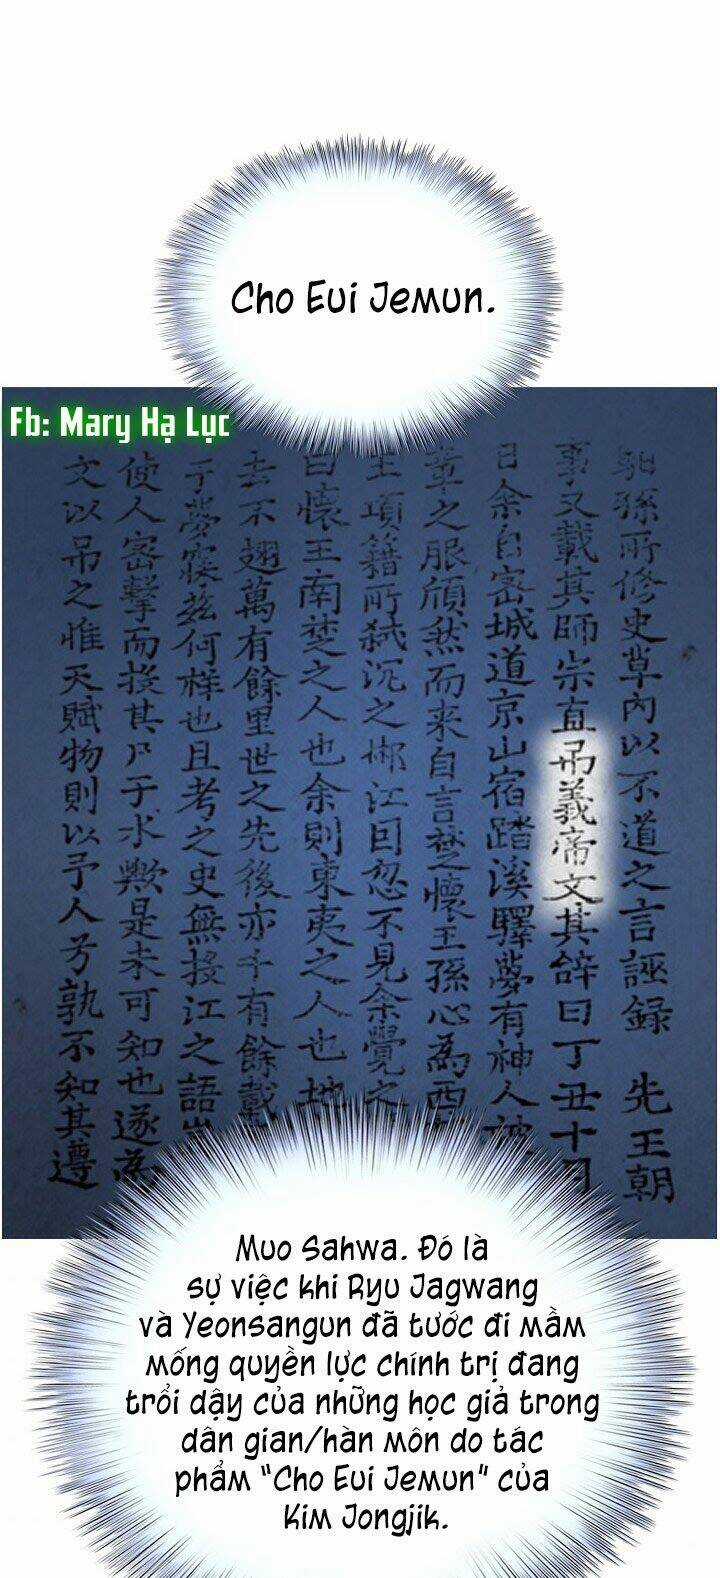 Cho Eui Jemun.
Fb: Mary Hạ Lục
馹孫所修史草內以不道之言誣錄 先王朝
事又載其師宗直吊義帝文其辞曰丁丑十月
日余自密城道京山宿踏溪驛夢有神人被
章之服頎然而来自言楚懷王孫心為西
王項籍所弑沉之郴江因忽不見余覺之
曰懷王南楚之人也余則東夷之人也地
去不翅萬有餘里世之先後亦千有餘載
于夢寐茲何樣也且考之史無投江之語
使人密擊而投其尸于水歟是未可知也遂為
文以吊之惟天賦物則以予人兮孰不知其遵
Muo Sahwa. Đó là
sự việc khi Ryu Jagwang
và Yeonsangun đã tước đi mầm
mống quyền lực chính trị đang
trổi dậy của những học giả trong
dân gian/hàn môn do tác
phẩm “Cho Eui Jemun” của
Kim Jongjik.